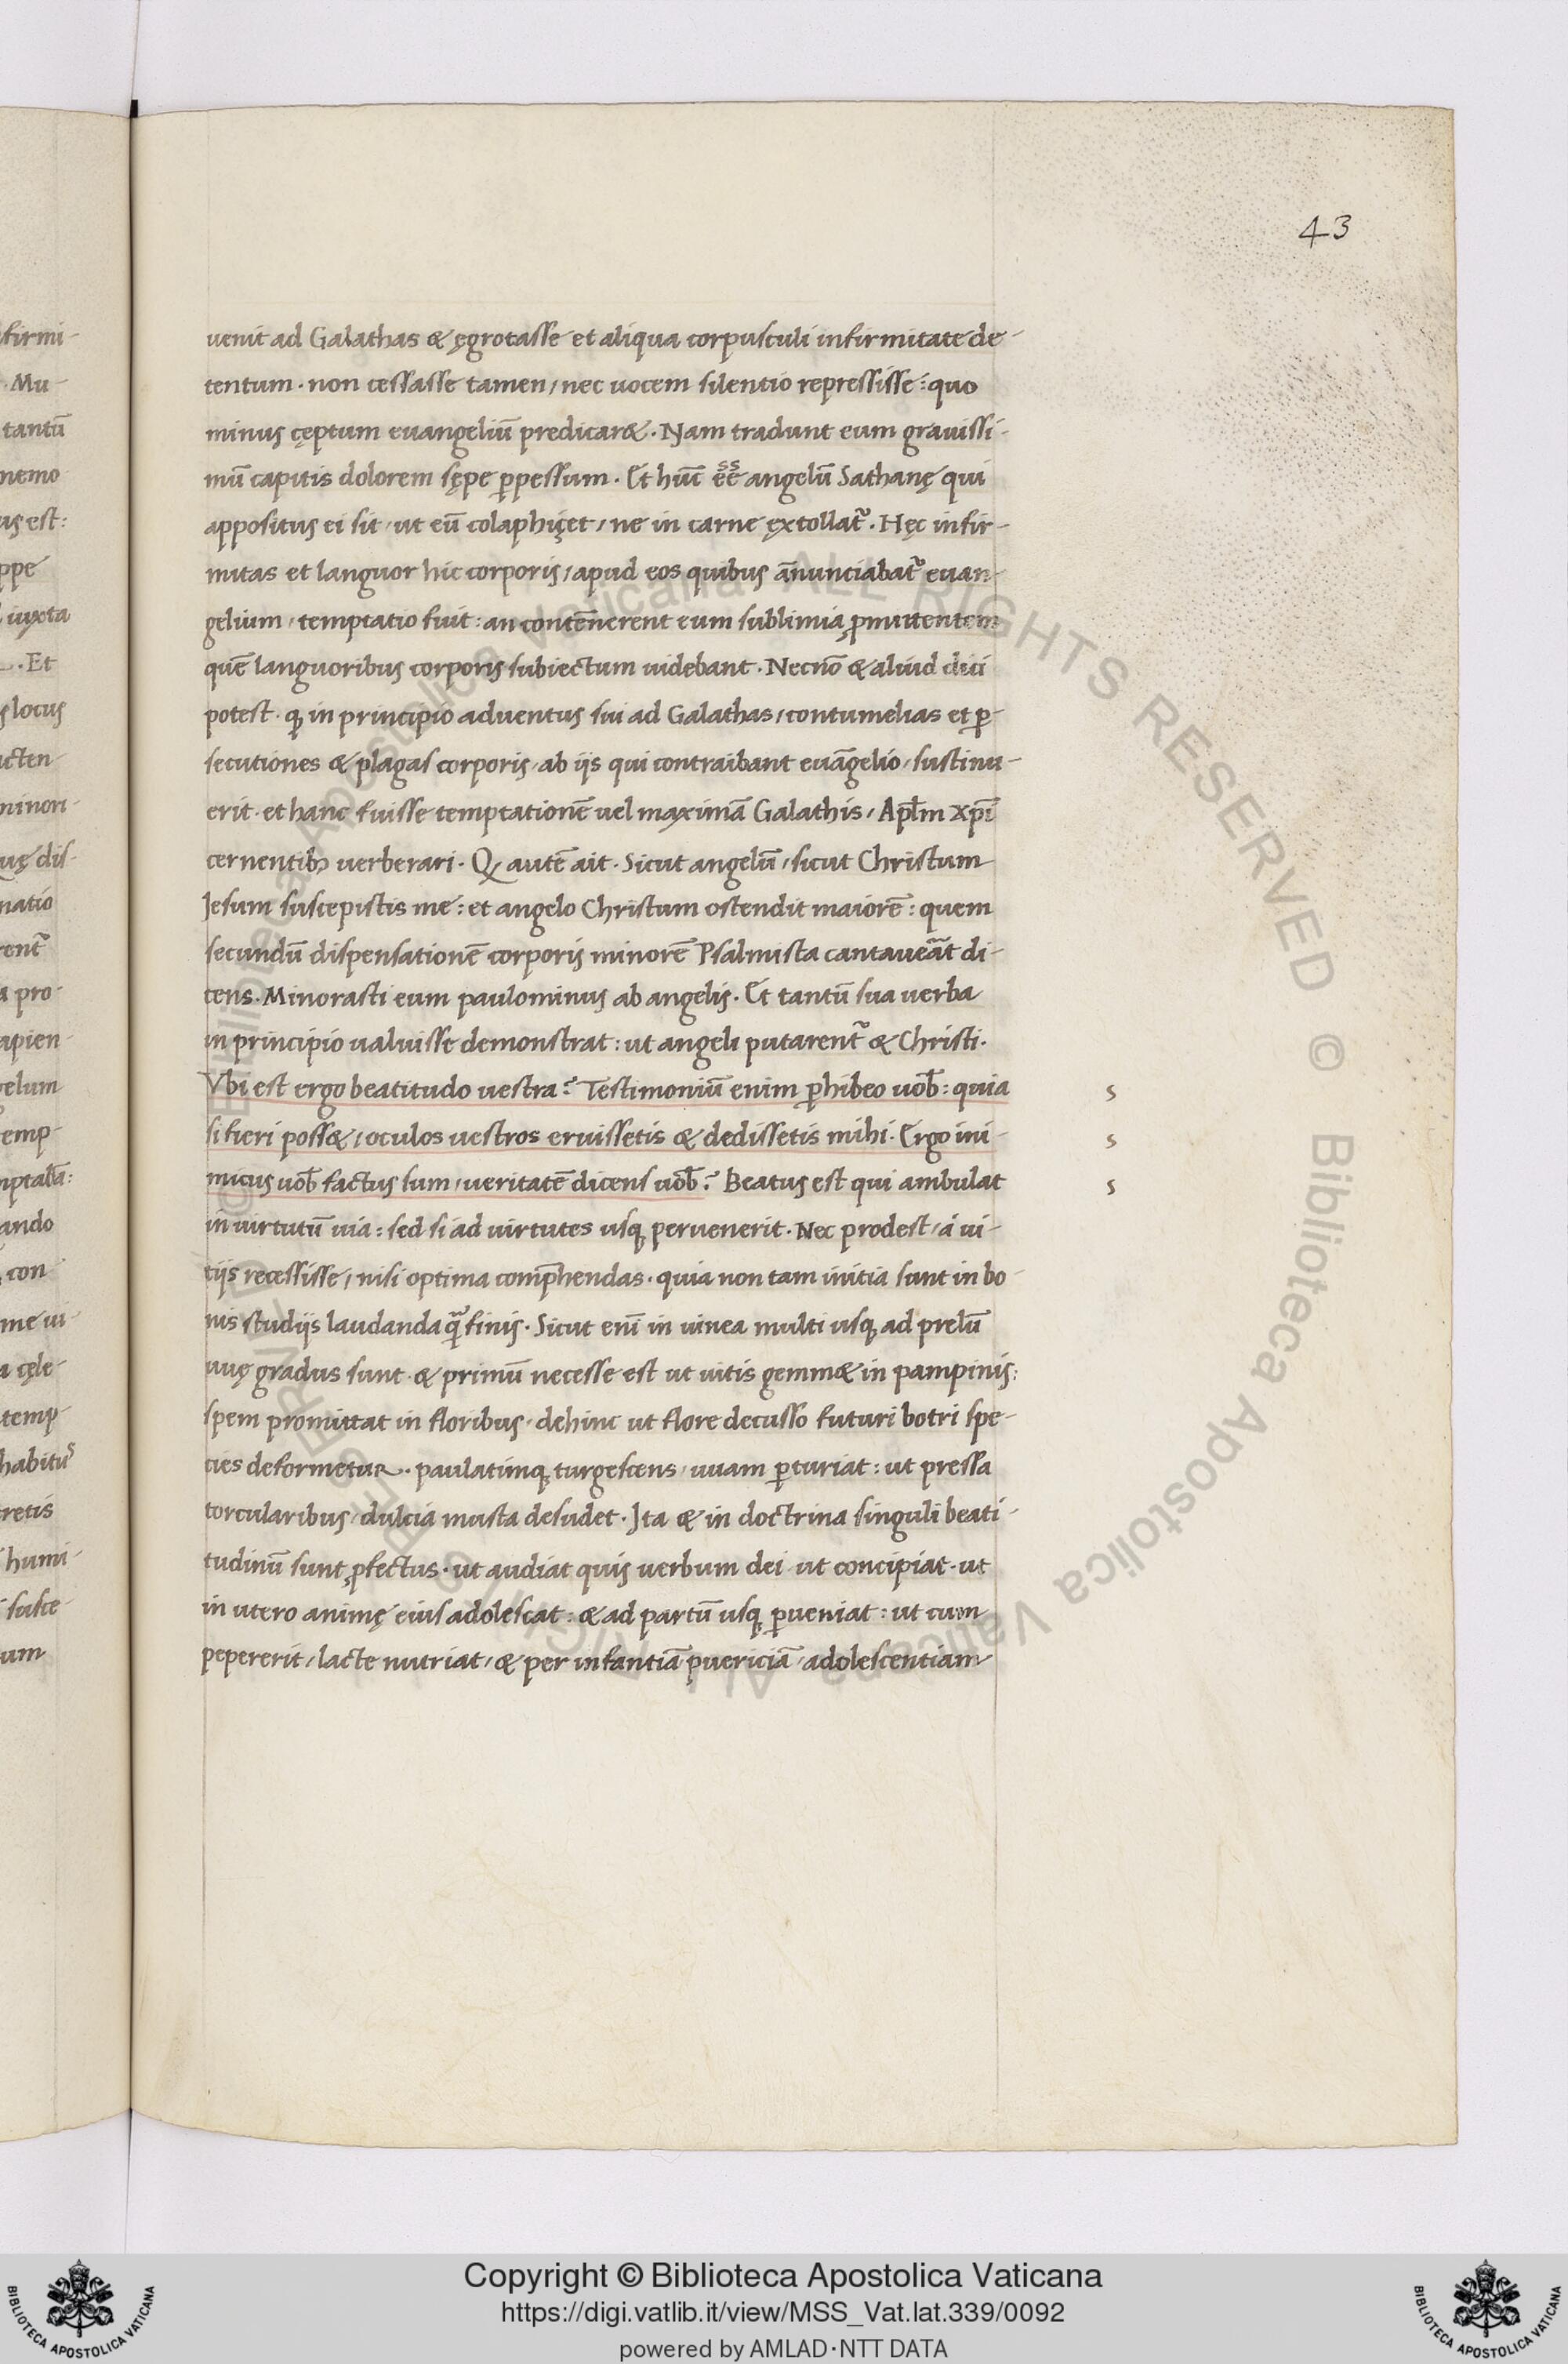 43
uenit ad Galathas & ęgrotasse et aliqua corpusculi infirmitate de-
tentum. non cessasse tamen, nec uocem silentio repressisse: quo
minus cęptum euangeliū predicar&. Nam tradunt eum grauissi-
mū capitis dolorem sępe ꝑpessum. Et hūc ēē angelū Sathanę qui
appositus ei sit, ut eū colaphiçet, ne in carne ęxtollat᷑. Hęc infir-
mitas et languor hic corporis, apud eos quibus ānunciabat᷑ euan-
gelium, temptatio fuit: an contēnerent eum sublimia ꝓmittentem
quē languoribus corporis subiectum uidebant. Necnō & aliud dici
potest. ꝙ in principio aduentus sui ad Galathas, contumelias et ꝑ-
secutiones & plagas corporis, ab ijs qui contraibant euāgelio, sustinu-
erit. et hanc fuisse temptationē uel maximā Galathis, Apl̄m xp̄i
cernentibꝫ uerberari. Ꝙ autē ait. Sicut angelū, sicut Christum
Iesum suscepistis me: et angelo Christum ostendit maiorē: quem
secundū dispensationē corporis minorē Psalmista cantaueāt di-
cens. Minorasti eum paulominus ab angelis. Et tantū sua uerba
in principio ualuisse demonstrat: ut angeli putarent᷑ & Christi.
Vbi est ergo beatitudo uestra? Testimoniū enim ꝑhibeo uob̄: quia s
si fieri poss&, oculos uestros eruissetis & dedissetis mihi. Ergo ini- s
micus uob̄ factus sum, ueritatē dicens uob̄? Beatus est qui ambulat s
in uirtutū uia: sed si ad uirtutes usqꝫ peruenerit. Nec prodest, a ui-
tijs recessisse, nisi optima comp̄hendas. quia non tam initia sunt in bo-
nis studijs laudanda q̄ finis. Sicut enī in uinea multi usqꝫ ad prelū
uuę gradus sunt. & primū necesse est ut uitis gemm& in pampinis:
spem promittat in floribus, dehinc ut flore decusso futuri botri spe-
cies deformetur. paulatimqꝫ turgescens, uuam ꝑturiat: ut pressa
torcularibus, dulcia musta desudet. Ita & in doctrina singuli beati-
tudinū sunt ꝓfectus. ut audiat quis uerbum dei. ut concipiat. ut
in utero animę eius adolescat: & ad partū usqꝫ ꝑueniat: ut cum
pepererit, lacte nutriat, & per infantiā puericiā, adolescentiam
Copyright © Biblioteca Apostolica Vaticana
https://digi.vatlib.it/view/MSS_Vat.lat.339/0092
powered by AMLAD·NTT DATA